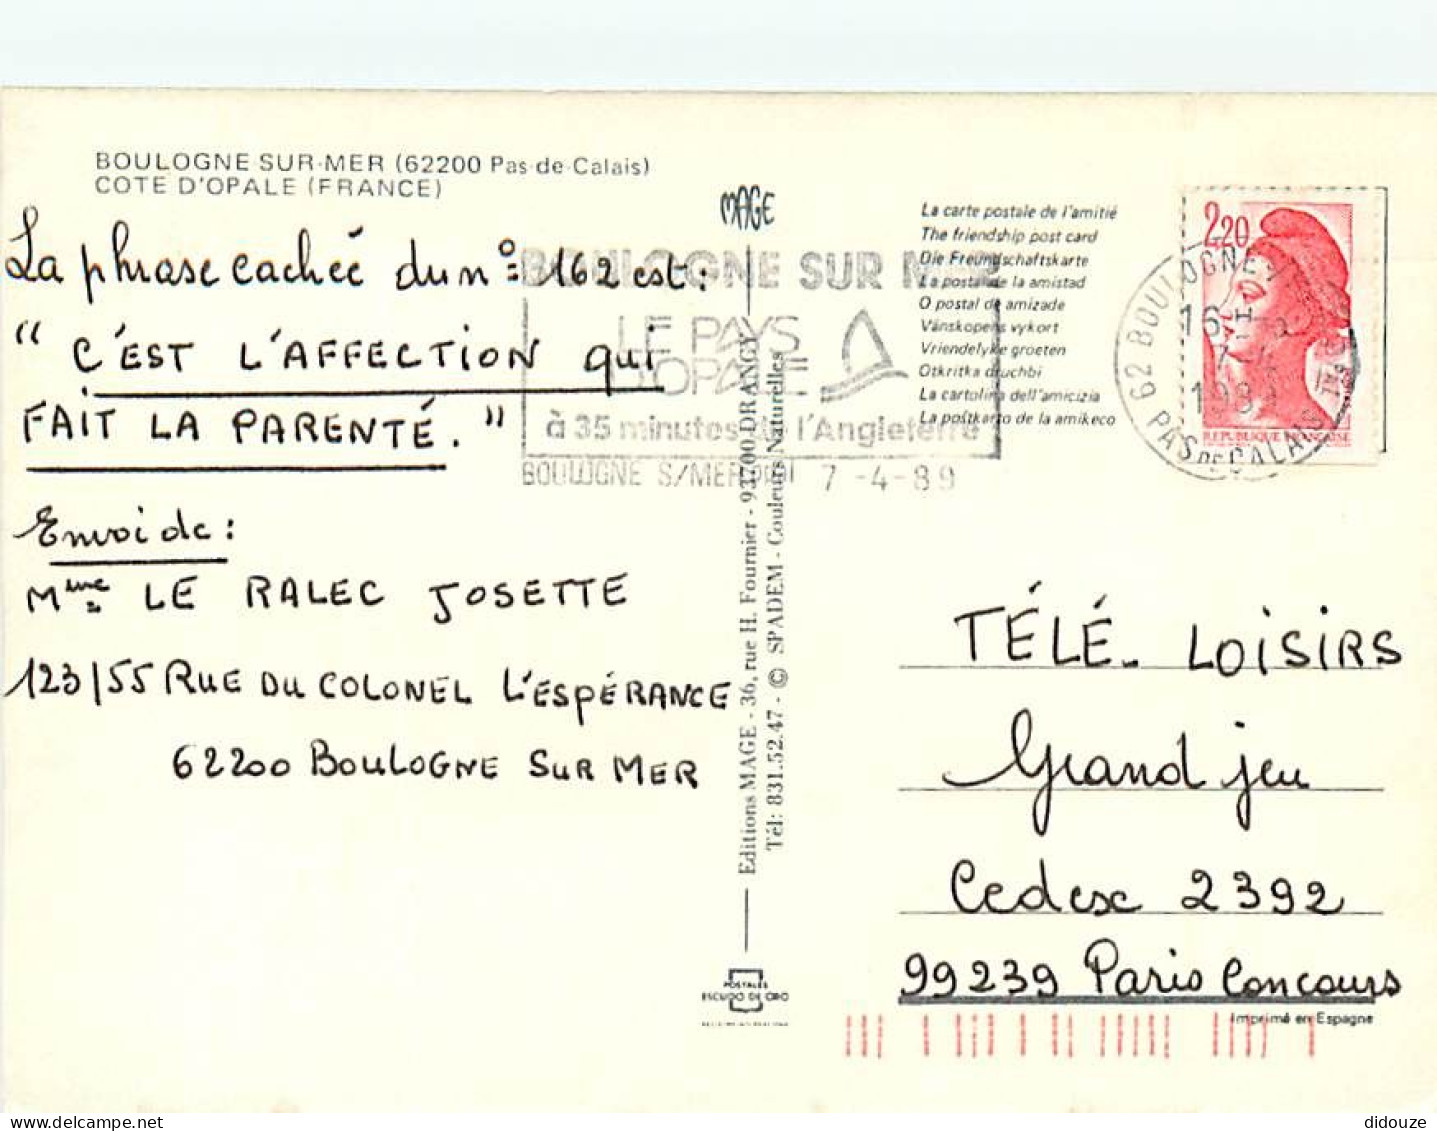 BOULOGNE-SUR-MER (62200 Pas-de-Calais)
COTE D'OPALE (FRANCE)
La phrase cachée du n° 162 est :
" C'EST L'AFFECTION qui
FAIT LA PARENTÉ. "
Envoi de :
Mme LE RALEC JOSETTE
123/55 RUE DU COLONEL L'ESPÉRANCE
62200 BOULOGNE SUR MER
MAGE
Editions MAGE - 36, rue H. Fournier - 93700 DRANCY
Tél: 831.52.47 - © SPADEM - Couleurs Naturelles
POSTALES
ESCUDO DE ORO
BOULOGNE SUR MER
LE PAYS
D'OPALE
à 35 minutes de l'Angleterre
BOULOGNE S/MER PPAL 7 -4-89
La carte postale de l'amitié
The friendship post card
Die Freundschaftskarte
La postal de la amistad
O postal de amizade
Vänskopens vykort
Vriendelyke groeten
Otkritka druchbi
La cartolina dell'amicizia
La poŝtkarto de la amikeco
2,20
REPUBLIQUE FRANÇAISE
62 BOULOGNE S/MER
16H
7-4
1989
PAS DE CALAIS
TÉLÉ-LOISIRS
Grand jeu
Cedex 2392
99239 Paris Concours
Imprimé en Espagne
didouze